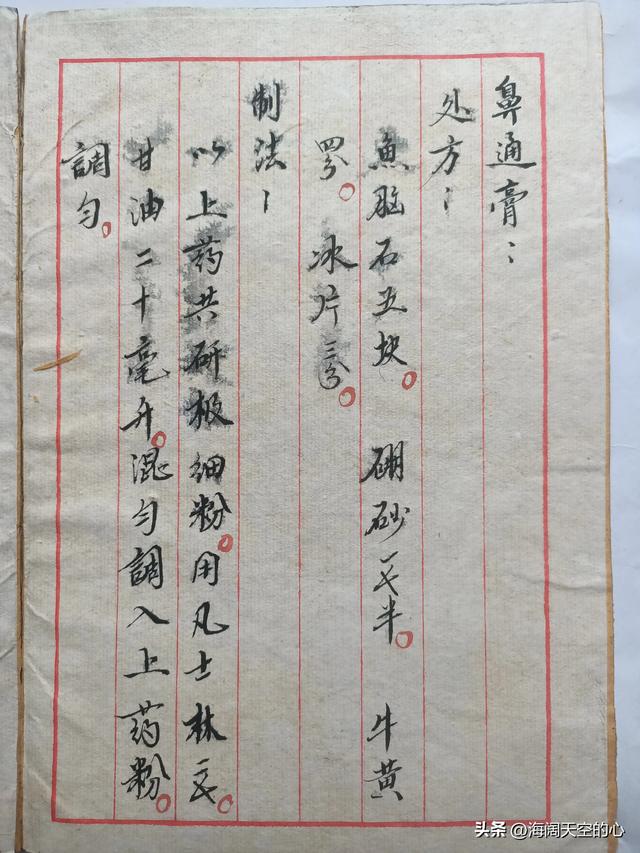 鼻通膏：
处方：
魚脑石五块。硼砂一戋半。牛黄
四分。冰片三分。
制法：
以上药共研极细粉。用凡士林。
甘油二十毫升。混匀調入上药粉。
調匀。
头条 @海阔天空的心